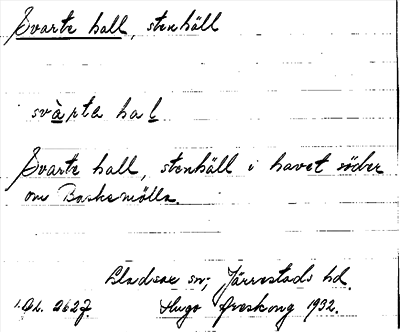 Svarte hall, stenhäll
svàrta hal
Svarte hall, stenhäll i havet söder
om Baskemölla.
Gladsax sn; Järrestads hd.
Hugo Areskoug 1932.